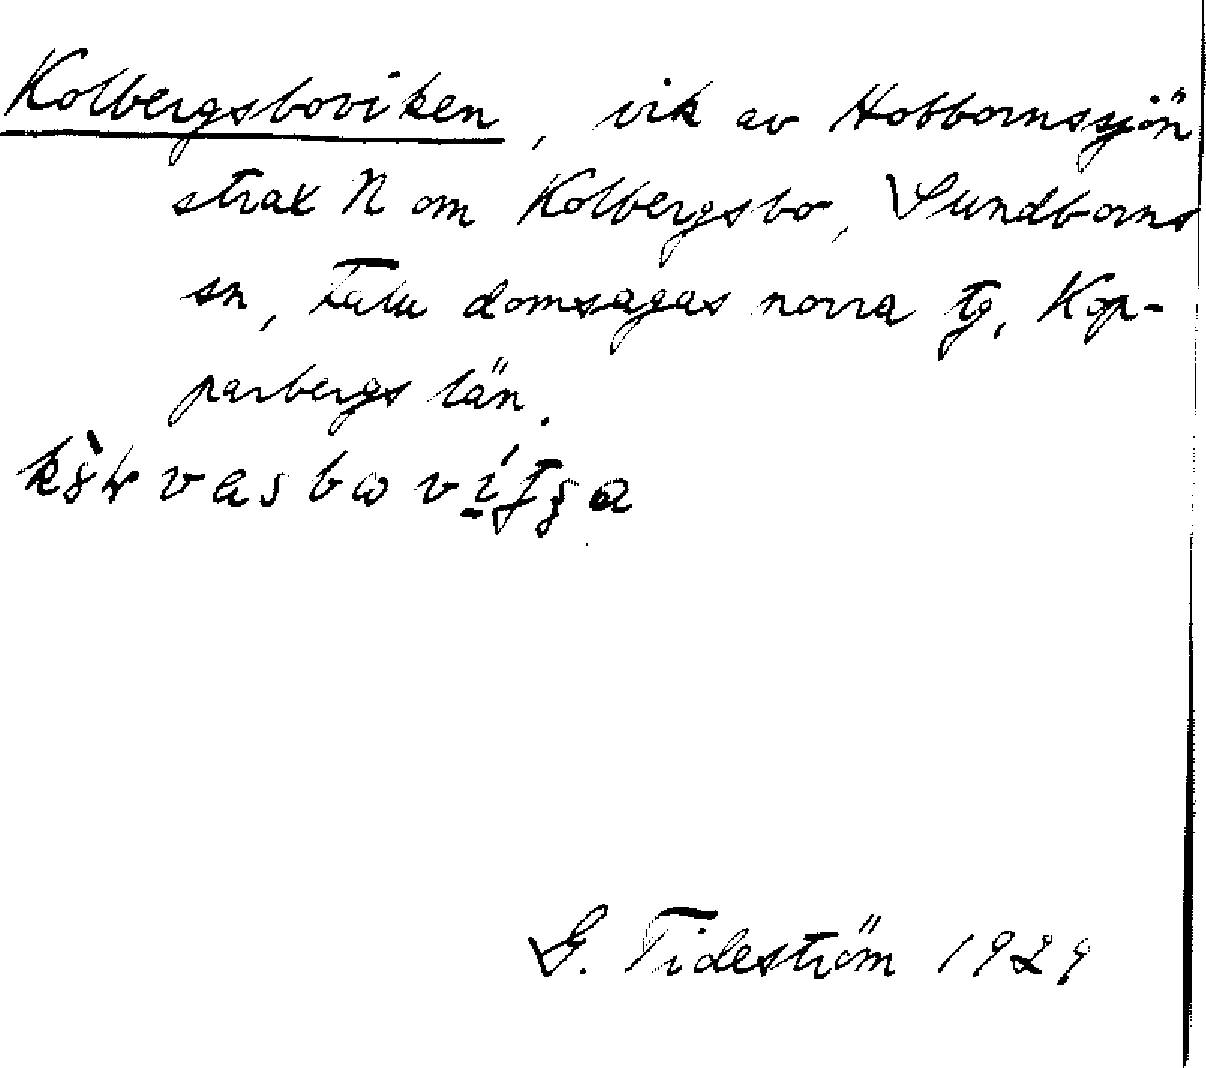 Kolbergsboviken, vik av Hobbornssjön
strax N om Kolbergsbo, Sundborns
sn, Falu domsagas norra tg, Kop-
parbergs län.
G. Tideström 1929